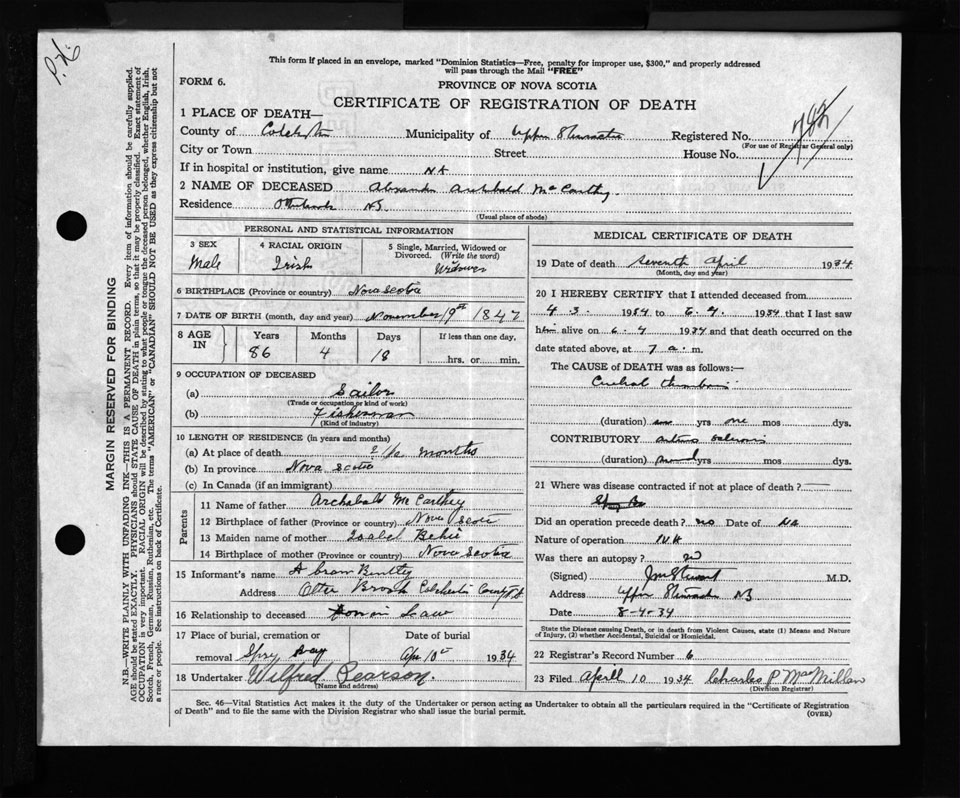 P.H.
This form if placed in an envelope, marked "Dominion Statistics—Free, penalty for improper use, $300," and properly addressed
will pass through the Mail "FREE"
FORM 6.
PROVINCE OF NOVA SCOTIA
CERTIFICATE OF REGISTRATION OF DEATH
1 PLACE OF DEATH—
County of Colchester Municipality of Upper Stewiacke Registered No. 782
(For use of Registrar General only)
City or Town Street House No.
If in hospital or institution, give name NA
2 NAME OF DECEASED Alexander Archibald McCarthy.
Residence Otterbrook NS
(Usual place of abode)
MARGIN RESERVED FOR BINDING
N.B.—WRITE PLAINLY WITH UNFADING INK—THIS IS A PERMANENT RECORD. Every item of information should be carefully supplied.
AGE should be stated EXACTLY. PHYSICIANS should STATE CAUSE OF DEATH in plain terms, so that it may be properly classified. Exact statement of
OCCUPATION is very important. RACIAL ORIGIN will be described by stating to what people or tongue the deceased person belonged, whether English, Irish,
Scotch, French, German, Russian, Ruthenian, etc. The terms "AMERICAN" or "CANADIAN" SHOULD NOT BE USED as they express citizenship but not
a race or people. See instructions on back of Certificate.
PERSONAL AND STATISTICAL INFORMATION
3 SEX
Male
4 RACIAL ORIGIN
Irish
5 Single, Married, Widowed or
Divorced. (Write the word)
Widower
6 BIRTHPLACE (Province or country) Nova Scotia
7 DATE OF BIRTH (month, day and year) November 19th 1847
8 AGE IN
Years Months Days If less than one day,
86 4 18 hrs. or min.
9 OCCUPATION OF DECEASED
(a) Sailor
(Trade or occupation or kind of work)
(b) Fisherman
(Kind of industry)
10 LENGTH OF RESIDENCE (in years and months)
(a) At place of death months
(b) In province Nova Scotia
(c) In Canada (if an immigrant)
Parents
11 Name of father Archabald McCarthey
12 Birthplace of father (Province or country) Nova Scoti
13 Maiden name of mother Isabel
14 Birthplace of mother (Province or country) Nova Scotia
15 Informant's name Abram
Address Otter Brook Colchester County NS
16 Relationship to deceased son in Law
17 Place of burial, cremation or Date of burial
removal Spry Bay Apr 10th 1934
18 Undertaker Wilfred Pearson.
(Name and address)
MEDICAL CERTIFICATE OF DEATH
19 Date of death Seventh April 1934
(Month, day and year)
20 I HEREBY CERTIFY that I attended deceased from
4.3. 1934 to 6.4. 1934 that I last saw
him alive on 6.4 1934 and that death occurred on the
date stated above, at 7 a. m.
The CAUSE of DEATH was as follows:—
Cerebral thrombosis
(duration) yrs one mos dys.
CONTRIBUTORY arterio sclerosis
(duration) several yrs mos dys.
21 Where was disease contracted if not at place of death?
Spry Bay
Did an operation precede death? no Date of NA
Nature of operation NA
Was there an autopsy? no
(Signed) M.D.
Address Upper Stewiacke NS
Date 8-4-34
State the Disease causing Death, or in death from Violent Causes, state (1) Means and Nature
of Injury, (2) whether Accidental, Suicidal or Homicidal.
22 Registrar's Record Number 6
23 Filed April 10 1934 Charles P MacMillan
(Division Registrar)
Sec. 46—Vital Statistics Act makes it the duty of the Undertaker or person acting as Undertaker to obtain all the particulars required in the "Certificate of Registration
of Death" and to file the same with the Division Registrar who shall issue the burial permit.
(OVER)